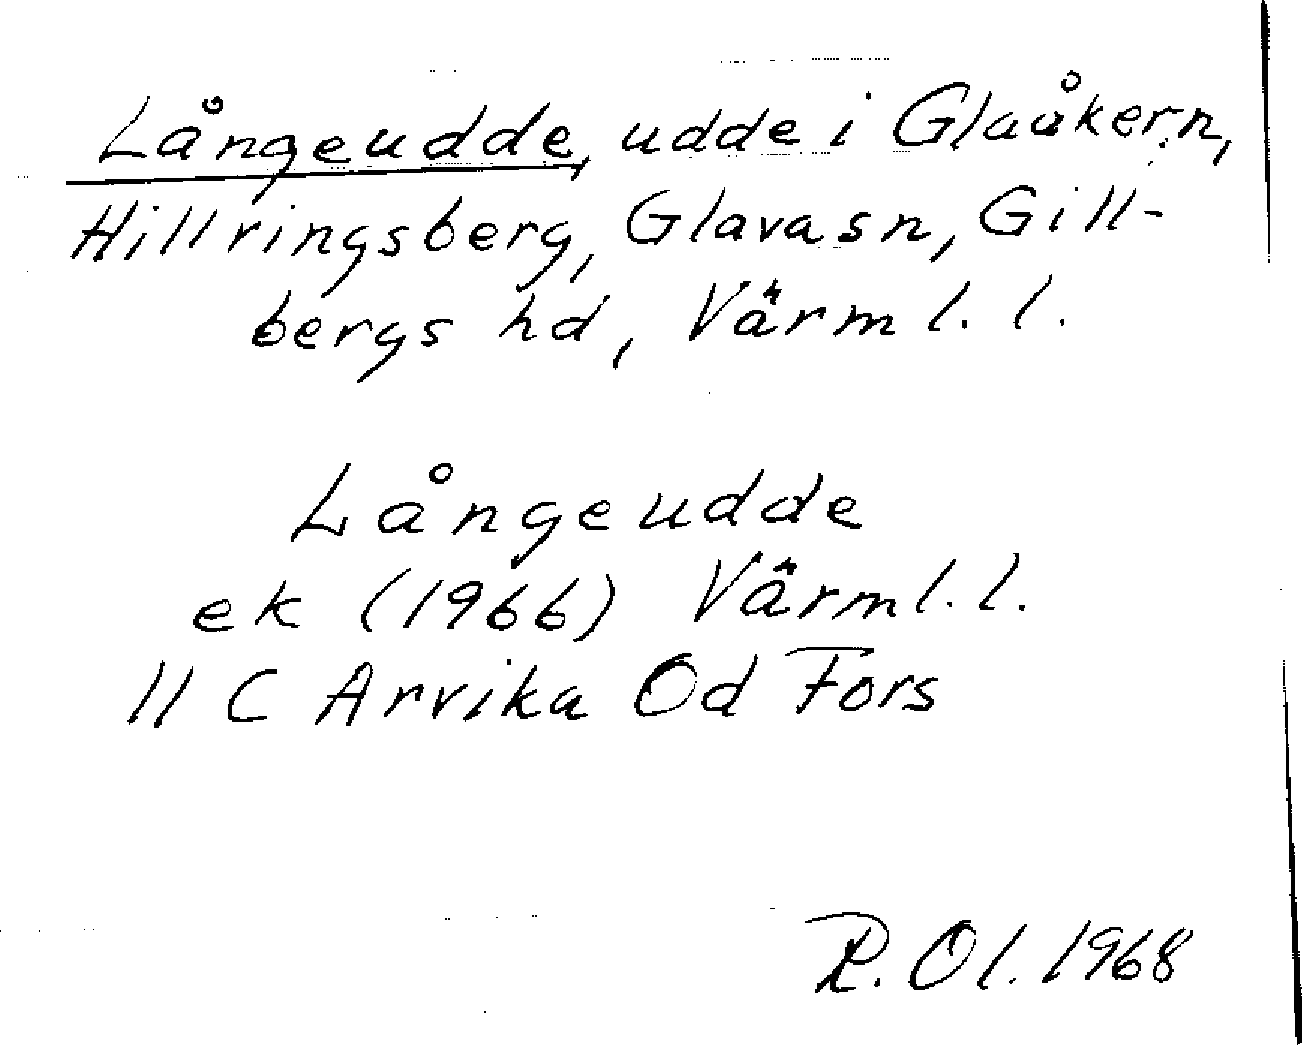 Långeudde, udde i Glaåkern,
Hillringsberg, Glava sn, Gill-
bergs hd, Värml. l.
Långeudde
ek (1966) Värml. l.
11 C Arvika Od Fors
R. Ol. 1968